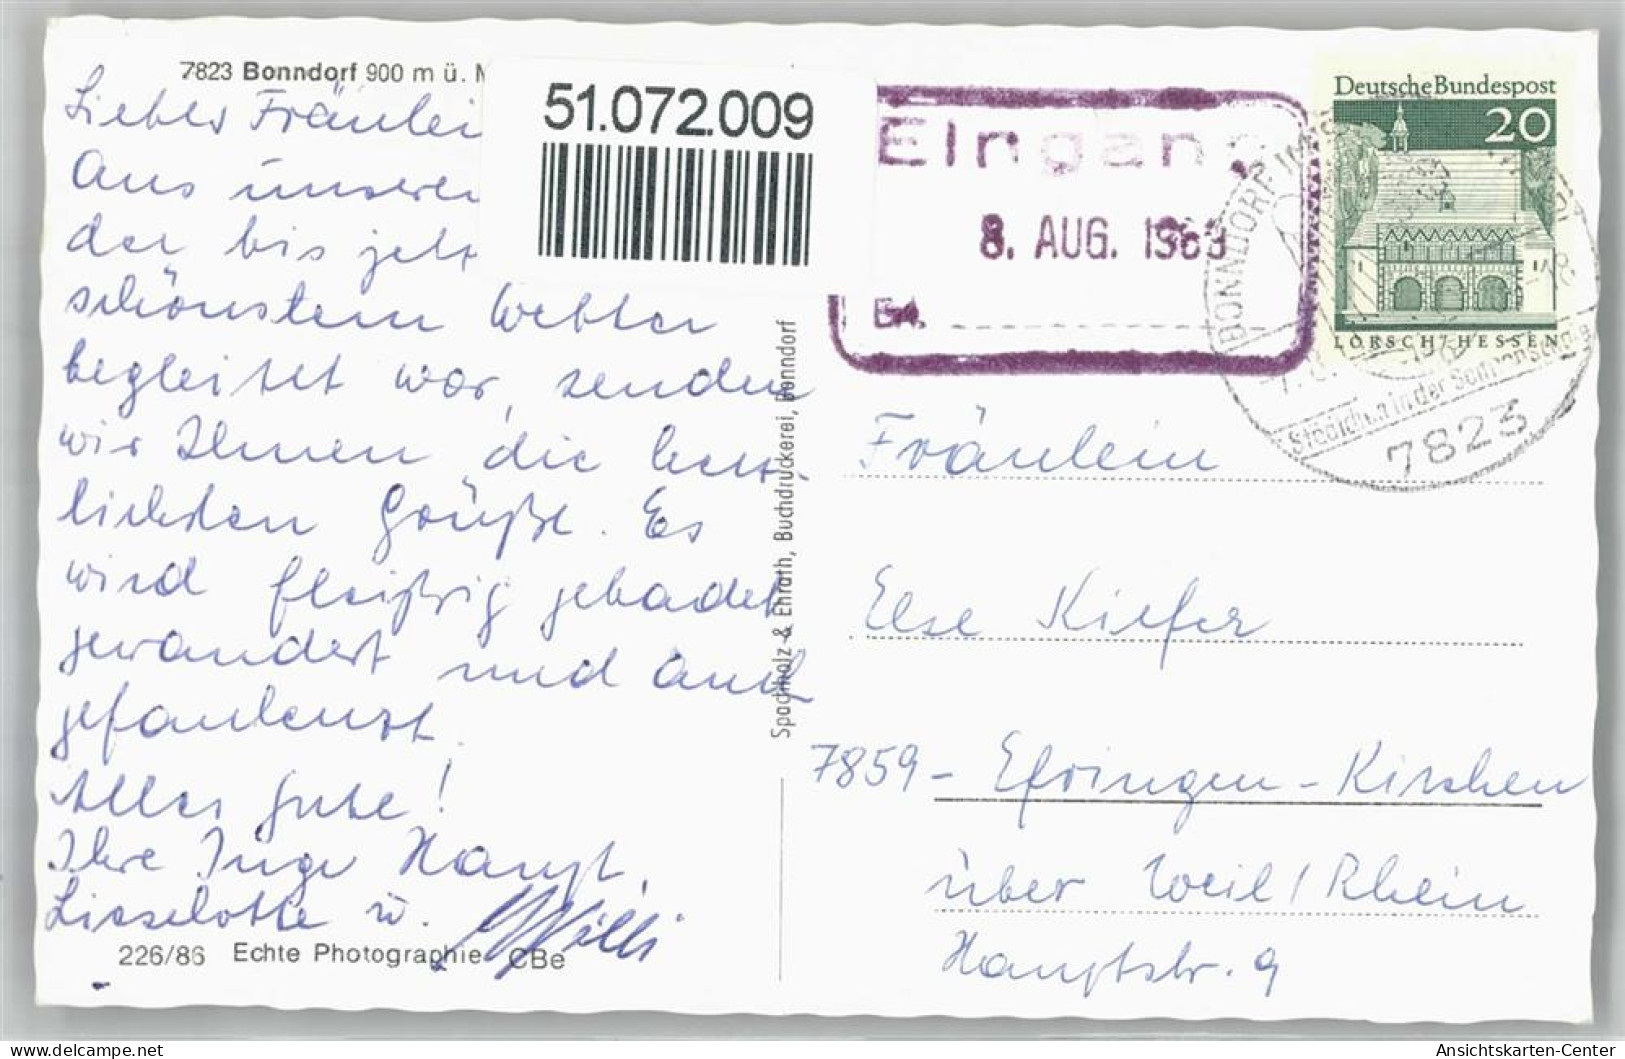 7823 Bonndorf 900 m ü.
Liebes Fräulei
Aus unserer
der bis jetzt
schönstem Wetter
begleitet war, senden
wir Ihnen die herz-
lichsten Grüße. Es
wird fleißig gebadet
gewandert und auch
gefaulenzt.
Alles Gute!
Ihre Inge Haupt,
Lieselotte u. Willi
226/86 Echte Photographie CBe
51.072.009
Spachholz & Ehrath, Buchdruckerei, Bonndorf
Eingang
8. AUG. 1969
Deutsche Bundespost
20
LORSCH/HESSEN
BONNDORF IM
Städtchen in der
7823
Fräulein
Else Kiefer
7859 - Efringen-Kirchen
über Weil/Rhein
Hauptstr. 9
Ansichtskarten-Center
the best of www.delcampe.net